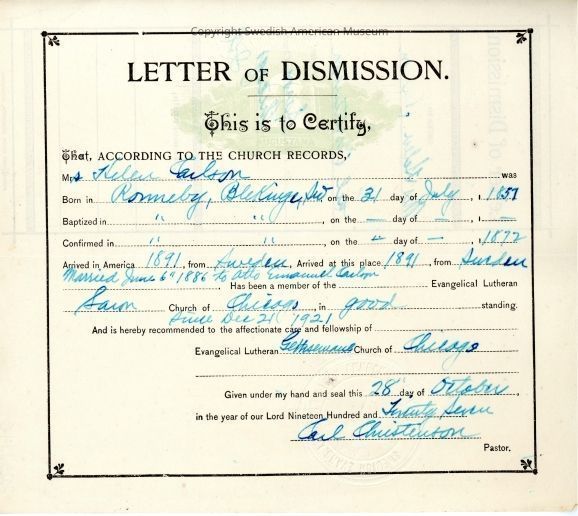 Copyright Swedish American Museum
LETTER OF DISMISSION.
This is to Certify,
That, ACCORDING TO THE CHURCH RECORDS,
Mrs Helen Carlson was
Born in Ronneby, Blekinge, Sw on the 31 day of July, 1857
Baptized in " " on the — day of —, 1 —
Confirmed in " " on the — day of —, 1872
Arrived in America 1891, from Sweden, Arrived at this place 1891, from Sweden
Married June 6th 1886 to Otto Emanuel Carlson
Has been a member of the Evangelical Lutheran
Saron Church of Chicago in good standing.
Since Dec 21 1921
And is hereby recommended to the affectionate care and fellowship of
Evangelical Lutheran Gethsemane Church of Chicago
Given under my hand and seal this 28 day of October,
in the year of our Lord Nineteen Hundred and Twenty Seven
Carl Christenson
Pastor.